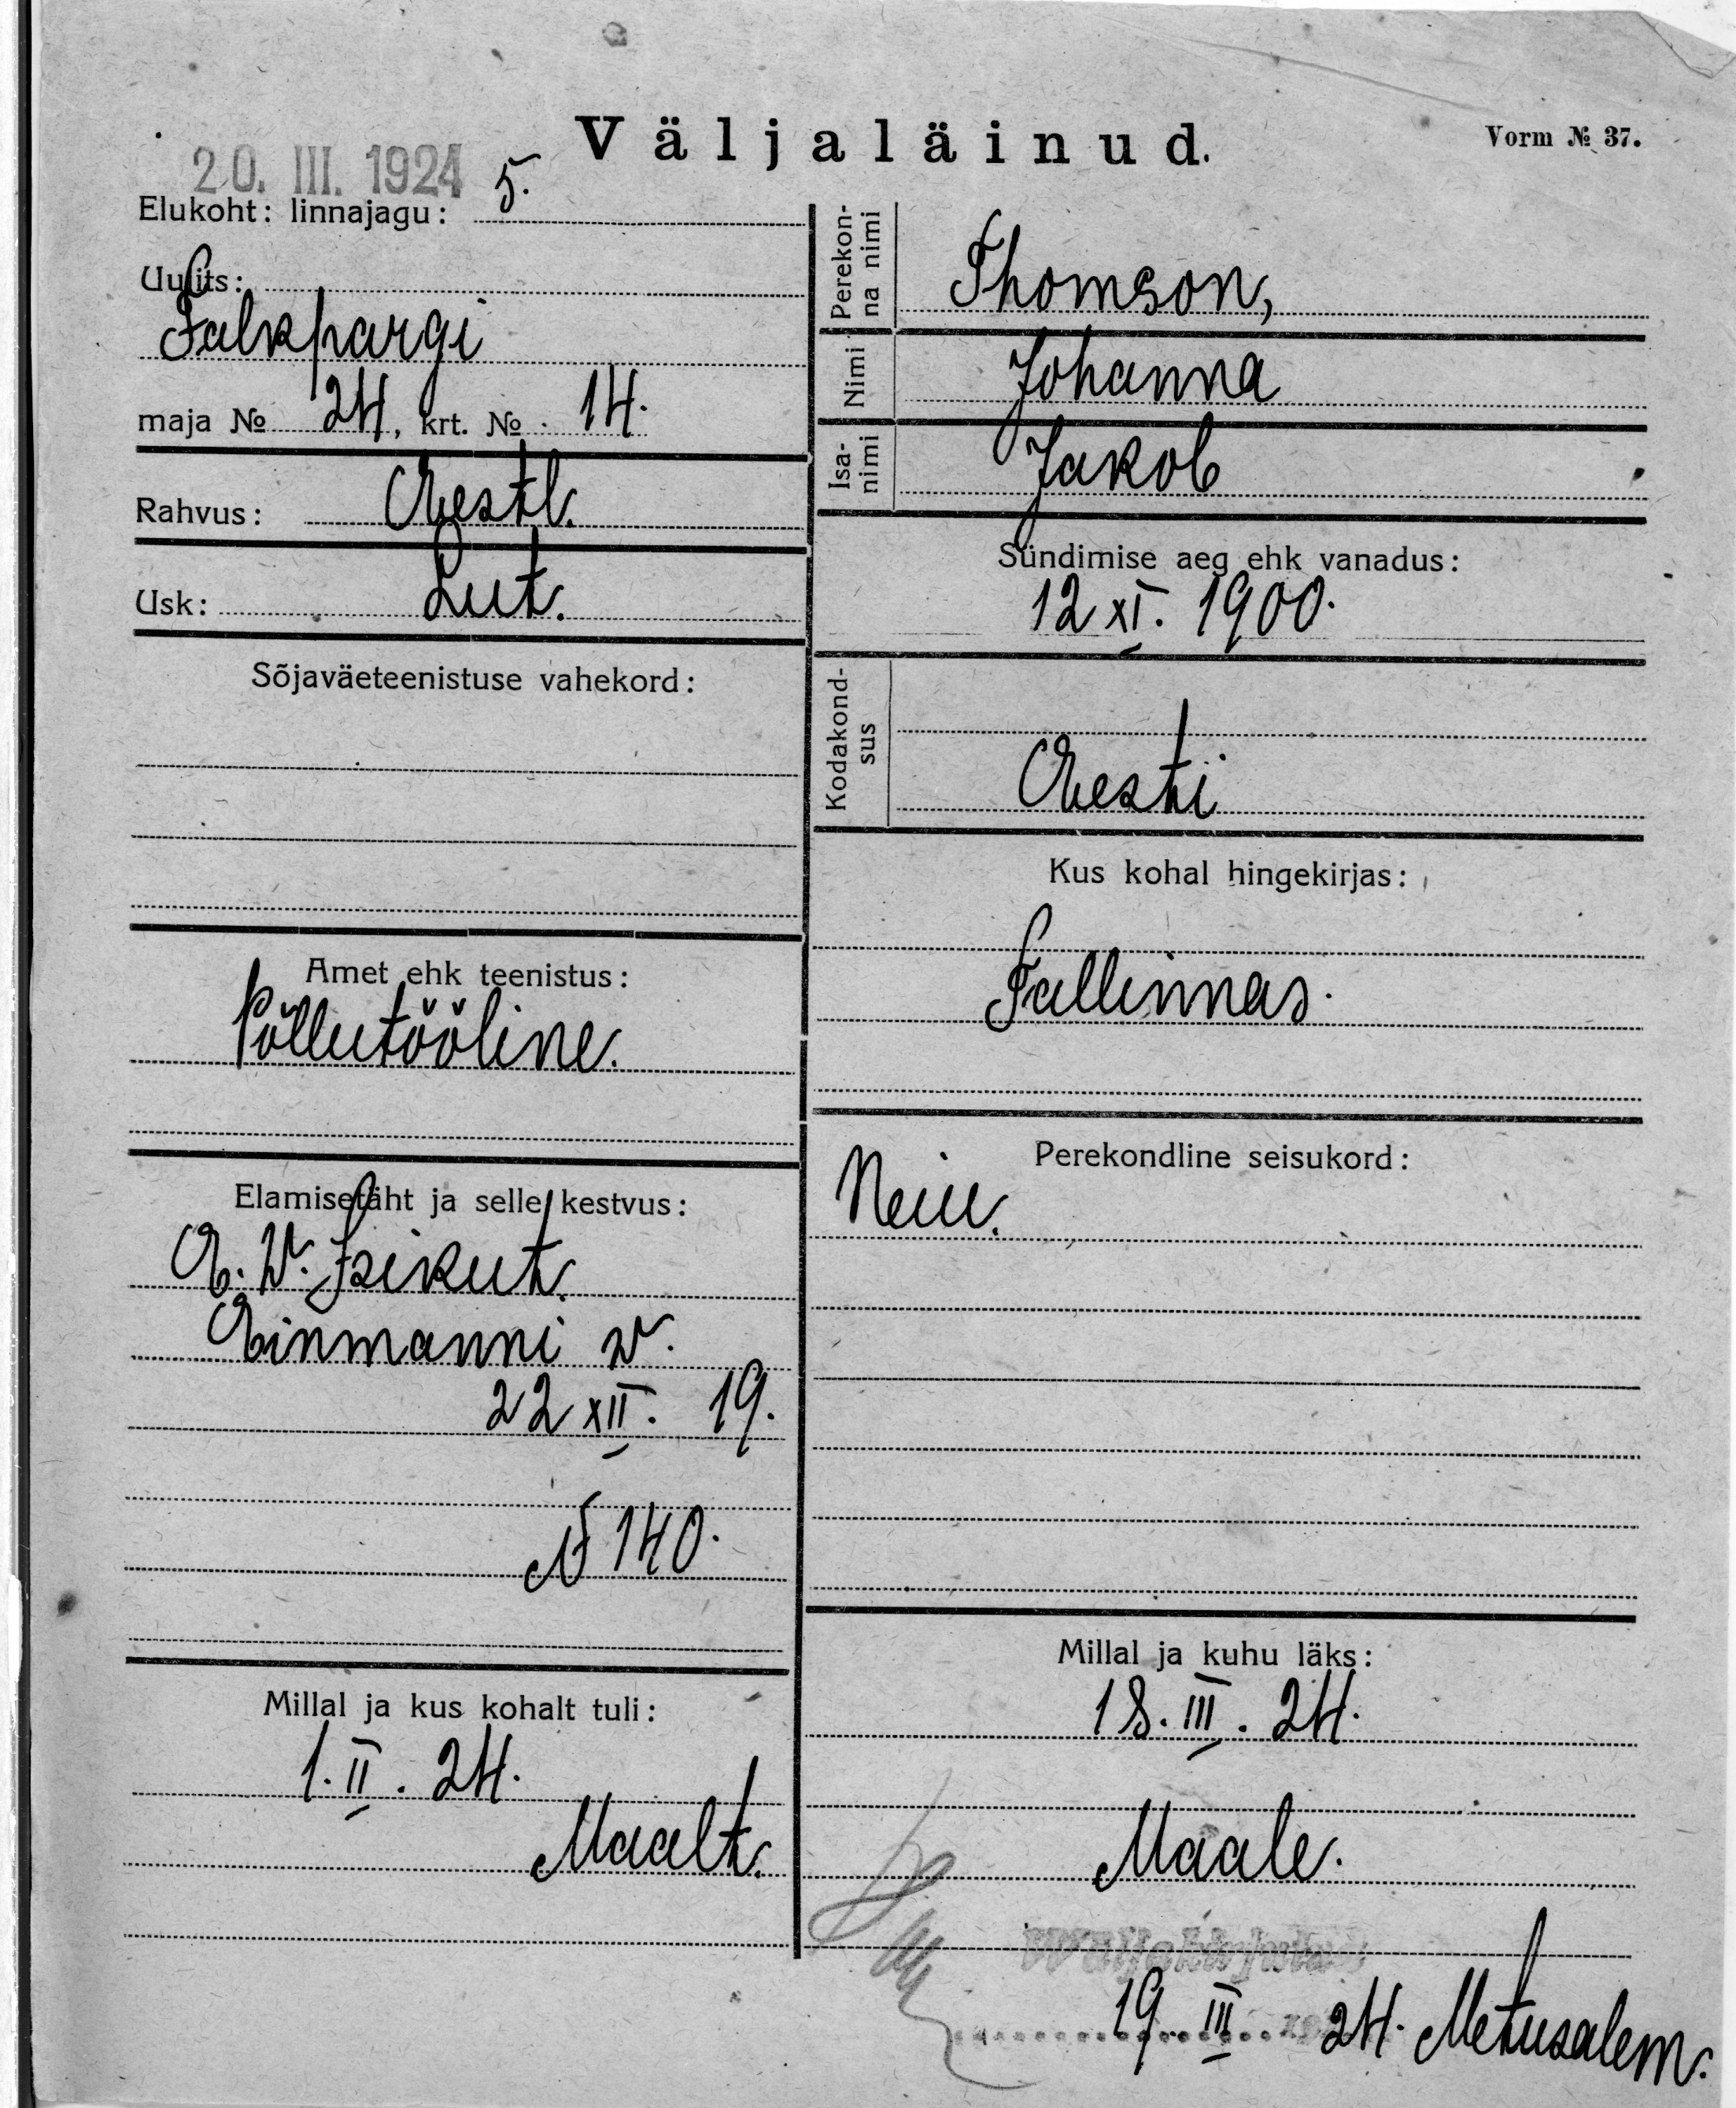 Väljaläinud.
Vorm № 37.
20. III. 1924
Elukoht: linnajagu: 5.
Uulits:
Falkpargi
maja № 24, krt. № 14.
Rahvus: Eestl.
Usk: Lut.
Sõjaväeteenistuse vahekord:
Amet ehk teenistus:
Põllutööline.
Elamisetäht ja selle kestvus:
E. W. Isikut.
Einmanni w.
22 XII. 19.
№ 140.
Millal ja kus kohalt tuli:
1. II. 24.
Maalt.
Perekon-
na nimi
Thomson,
Nimi
Johanna
Isa-
nimi
Jakob
Sündimise aeg ehk vanadus:
12 XI. 1900.
Kodakond-
sus
Eesti
Kus kohal hingekirjas:
Tallinnas.
Perekondline seisukord:
Neiu.
Millal ja kuhu läks:
18. III. 24.
Maale.
19. III 24. Metusalem.